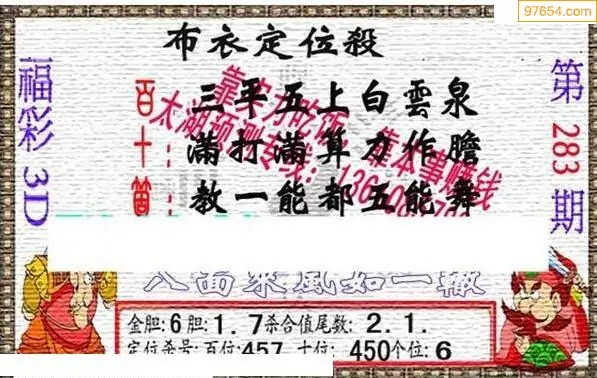 97654.com
布衣定位殺
福彩3D
第283期
百:三平五上白雲泉
十:滿打滿算力作膽
個:教一能都五能舞
八面來風如一轍
金胆:6胆:1.7杀合值尾数:2.1.
定位杀号:百位:457 十位:450个位:6